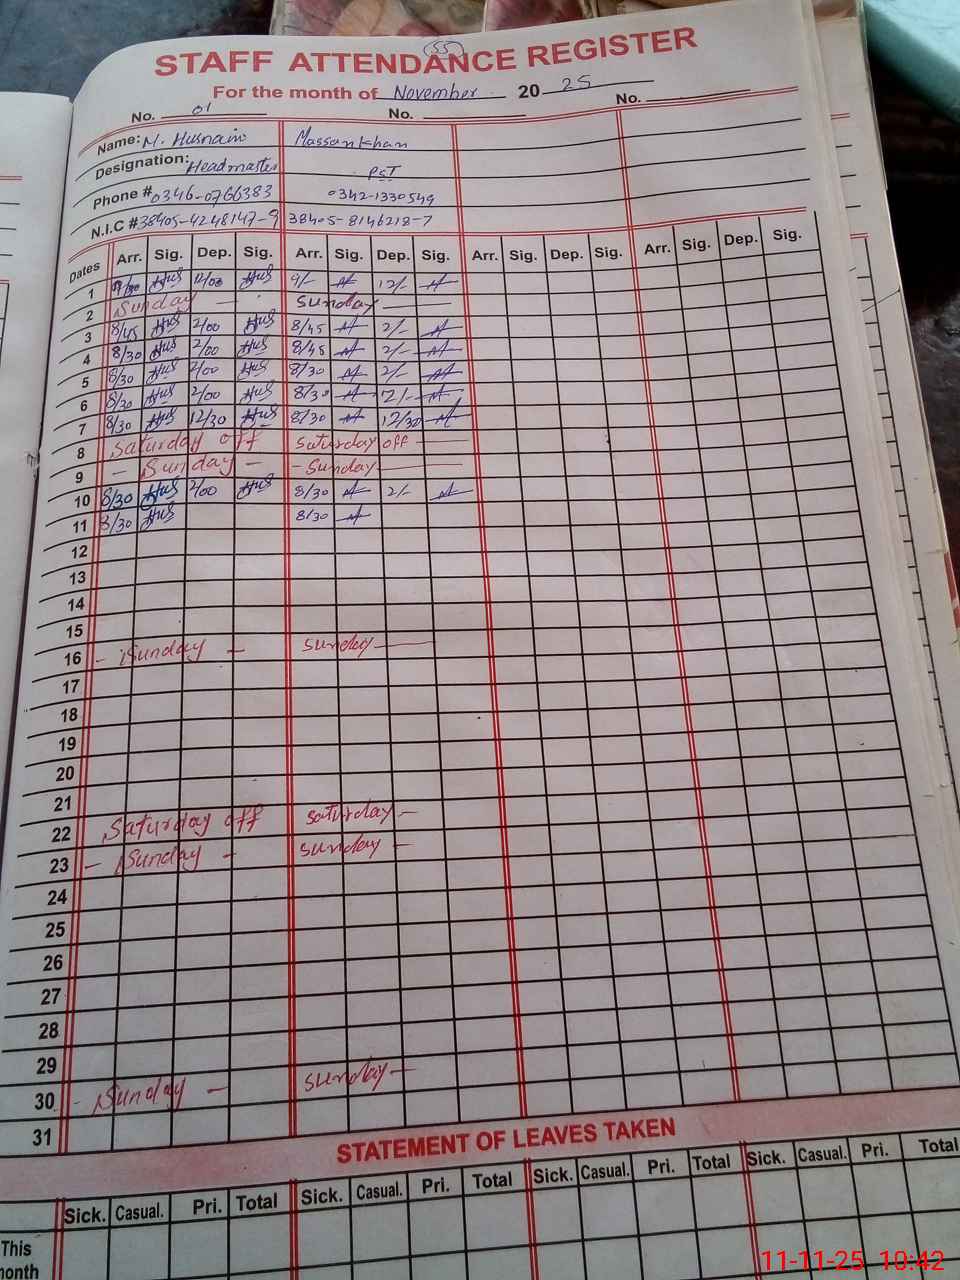 55
STAFF ATTENDANCE REGISTER
For the month of November 2025
No. 01 No. No.
Name: M. Husnain Massan Khan
Designation: Headmaster PST
Phone # 0346-0766383 0342-1330549
N.I.C # 38405-4248147-9 38405-8146218-7
Dates Arr. Sig. Dep. Sig. Arr. Sig. Dep. Sig. Arr. Sig. Dep. Sig. Arr. Sig. Dep. Sig.
1 Hus 12/00 Hus 9/- 12/-
2 Sunday - Sunday
3 8/45 Hus 2/00 Hus 8/45 2/-
4 8/30 Hus 2/00 Hus 8/45 2/-
5 8/30 Hus 2/00 Hus 8/30 2/-
6 8/30 Hus 2/00 Hus 8/30 2/-
7 8/30 Hus 12/30 Hus 8/30 12/30
8 Saturday off Saturday off
9 - Sunday - - Sunday
10 8/30 Hus 2/00 Hus 8/30 2/-
11 8/30 Hus 8/30
12
13
14
15
16 - Sunday - Sunday
17
18
19
20
21
22 Saturday off Saturday -
23 - Sunday - Sunday -
24
25
26
27
28
29
30 - Sunday - Sunday -
31
STATEMENT OF LEAVES TAKEN
Sick. Casual. Pri. Total Sick. Casual. Pri. Total Sick. Casual. Pri. Total Sick. Casual. Pri. Total
This
month
11-11-25 10:42